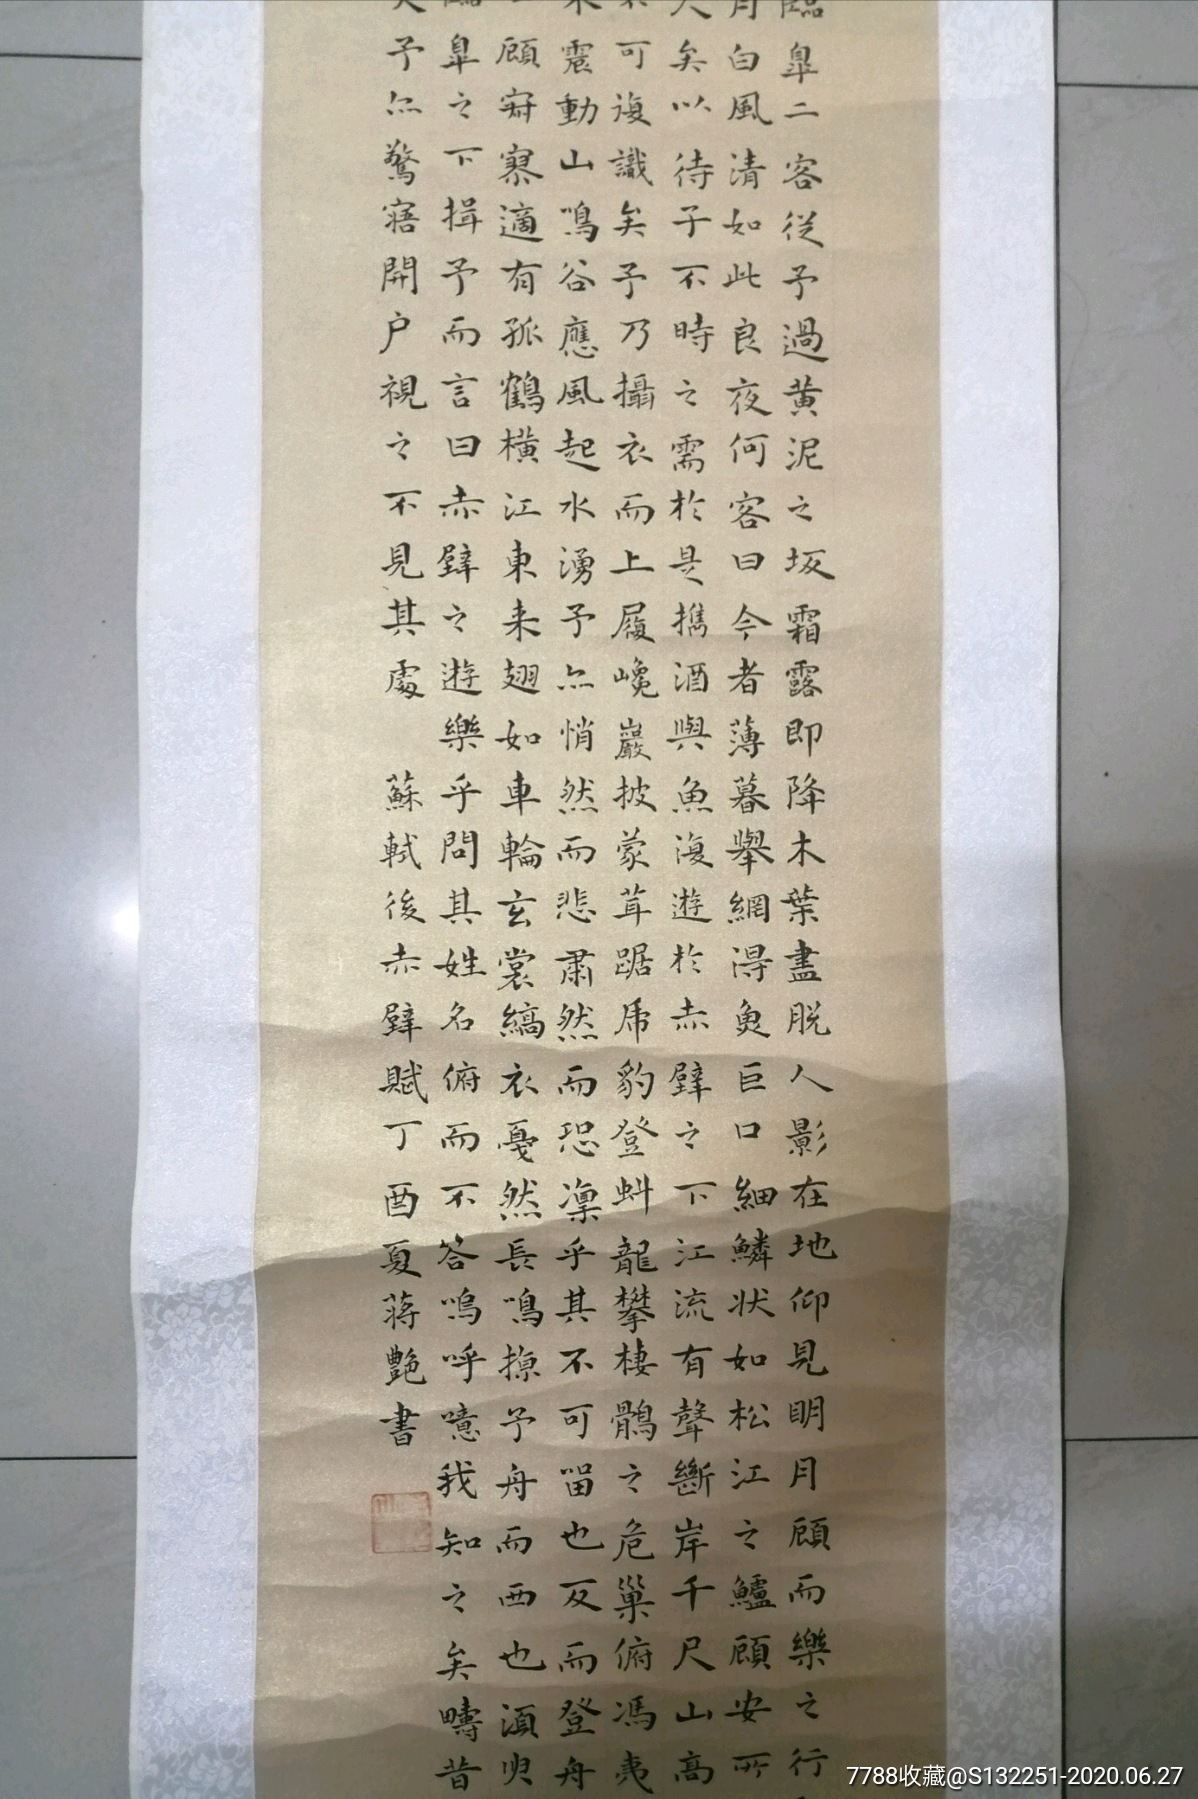 臨皐二客從予過黄泥之坂霜露即降木葉盡脱人影在地仰見明月顧而樂之行
月白風清如此良夜何客曰今者薄暮舉網得魚巨口細鱗狀如松江之鱸顧安所
久矣以待子不時之需於是攜酒與魚復遊於赤壁之下江流有聲斷岸千尺山高
可復識矣予乃攝衣而上履巉巖披蒙茸踞虎豹登虯龍攀棲鶻之危巢俯馮夷
木震動山鳴谷應風起水湧予亦悄然而悲肅然而恐凜乎其不可留也反而登舟
顧寂寥適有孤鶴橫江東来翅如車輪玄裳縞衣戛然長鳴掠予舟而西也須臾
臨皐之下揖予而言曰赤壁之遊樂乎問其姓名俯而不答嗚呼噫我知之矣疇昔
笑予亦驚寤開户視之不見其處 蘇軾後赤壁賦丁酉夏蔣艷書
7788收藏@S132251-2020.06.27